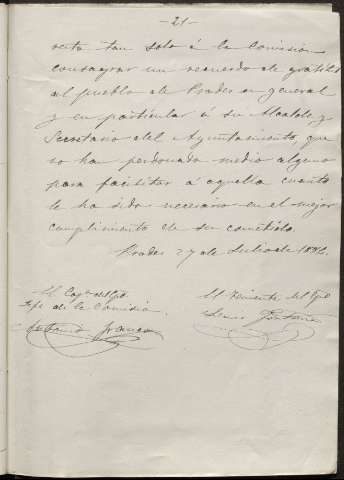 -21-
resta tan solo á la Comisión
consagrar un recuerdo de gratitud
al pueblo de Prades en general
y en particular á su Alcalde y
Secretario del Ayuntamiento, que
no han perdonado medio alguno
para facilitar á aquella cuanto
le ha sido necesario en el mejor
cumplimiento de su cometido.
Prades 27 de Julio de 189
El Cap.n del Cpo
Jefe de la Comisión
El Teniente del Cpo